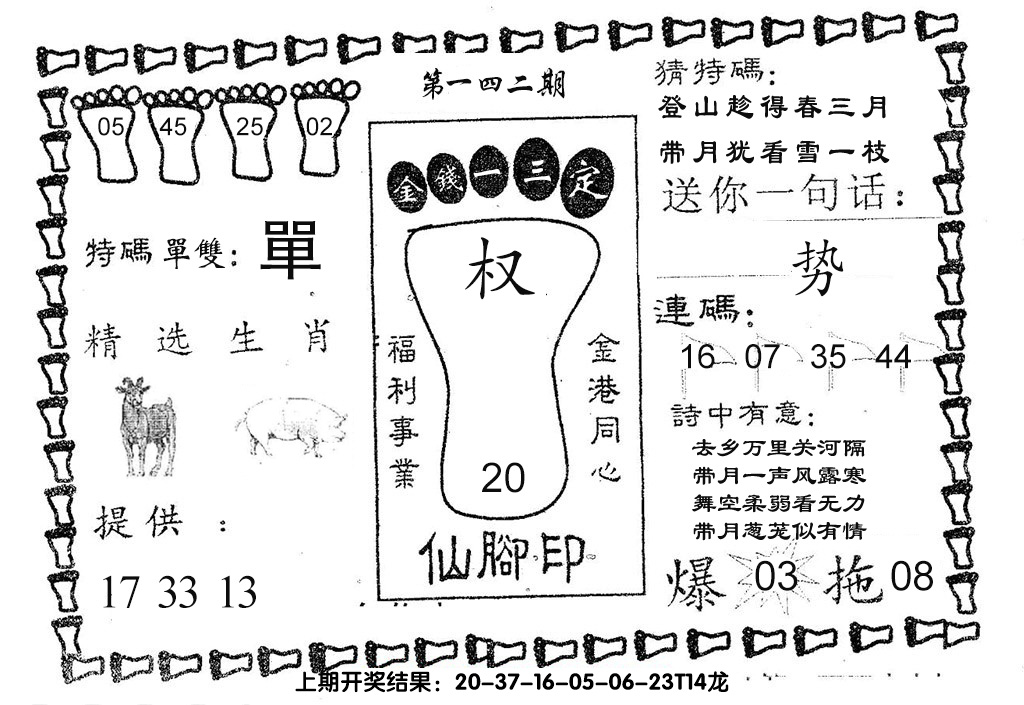 第一四二期
05 45 25 02
特碼單雙：單
精选生肖
提供：
17 33 13
金錢一三定
权
福利事業
金港同心
20
仙腳印
猜特碼：
登山趁得春三月
带月犹看雪一枝
送你一句话：
势
連碼：
16 07 35 44
詩中有意：
去乡万里关河隔
带月一声风露寒
舞空柔弱看无力
带月葱茏似有情
爆 03 拖 08
上期开奖结果：20-37-16-05-06-23T14龙